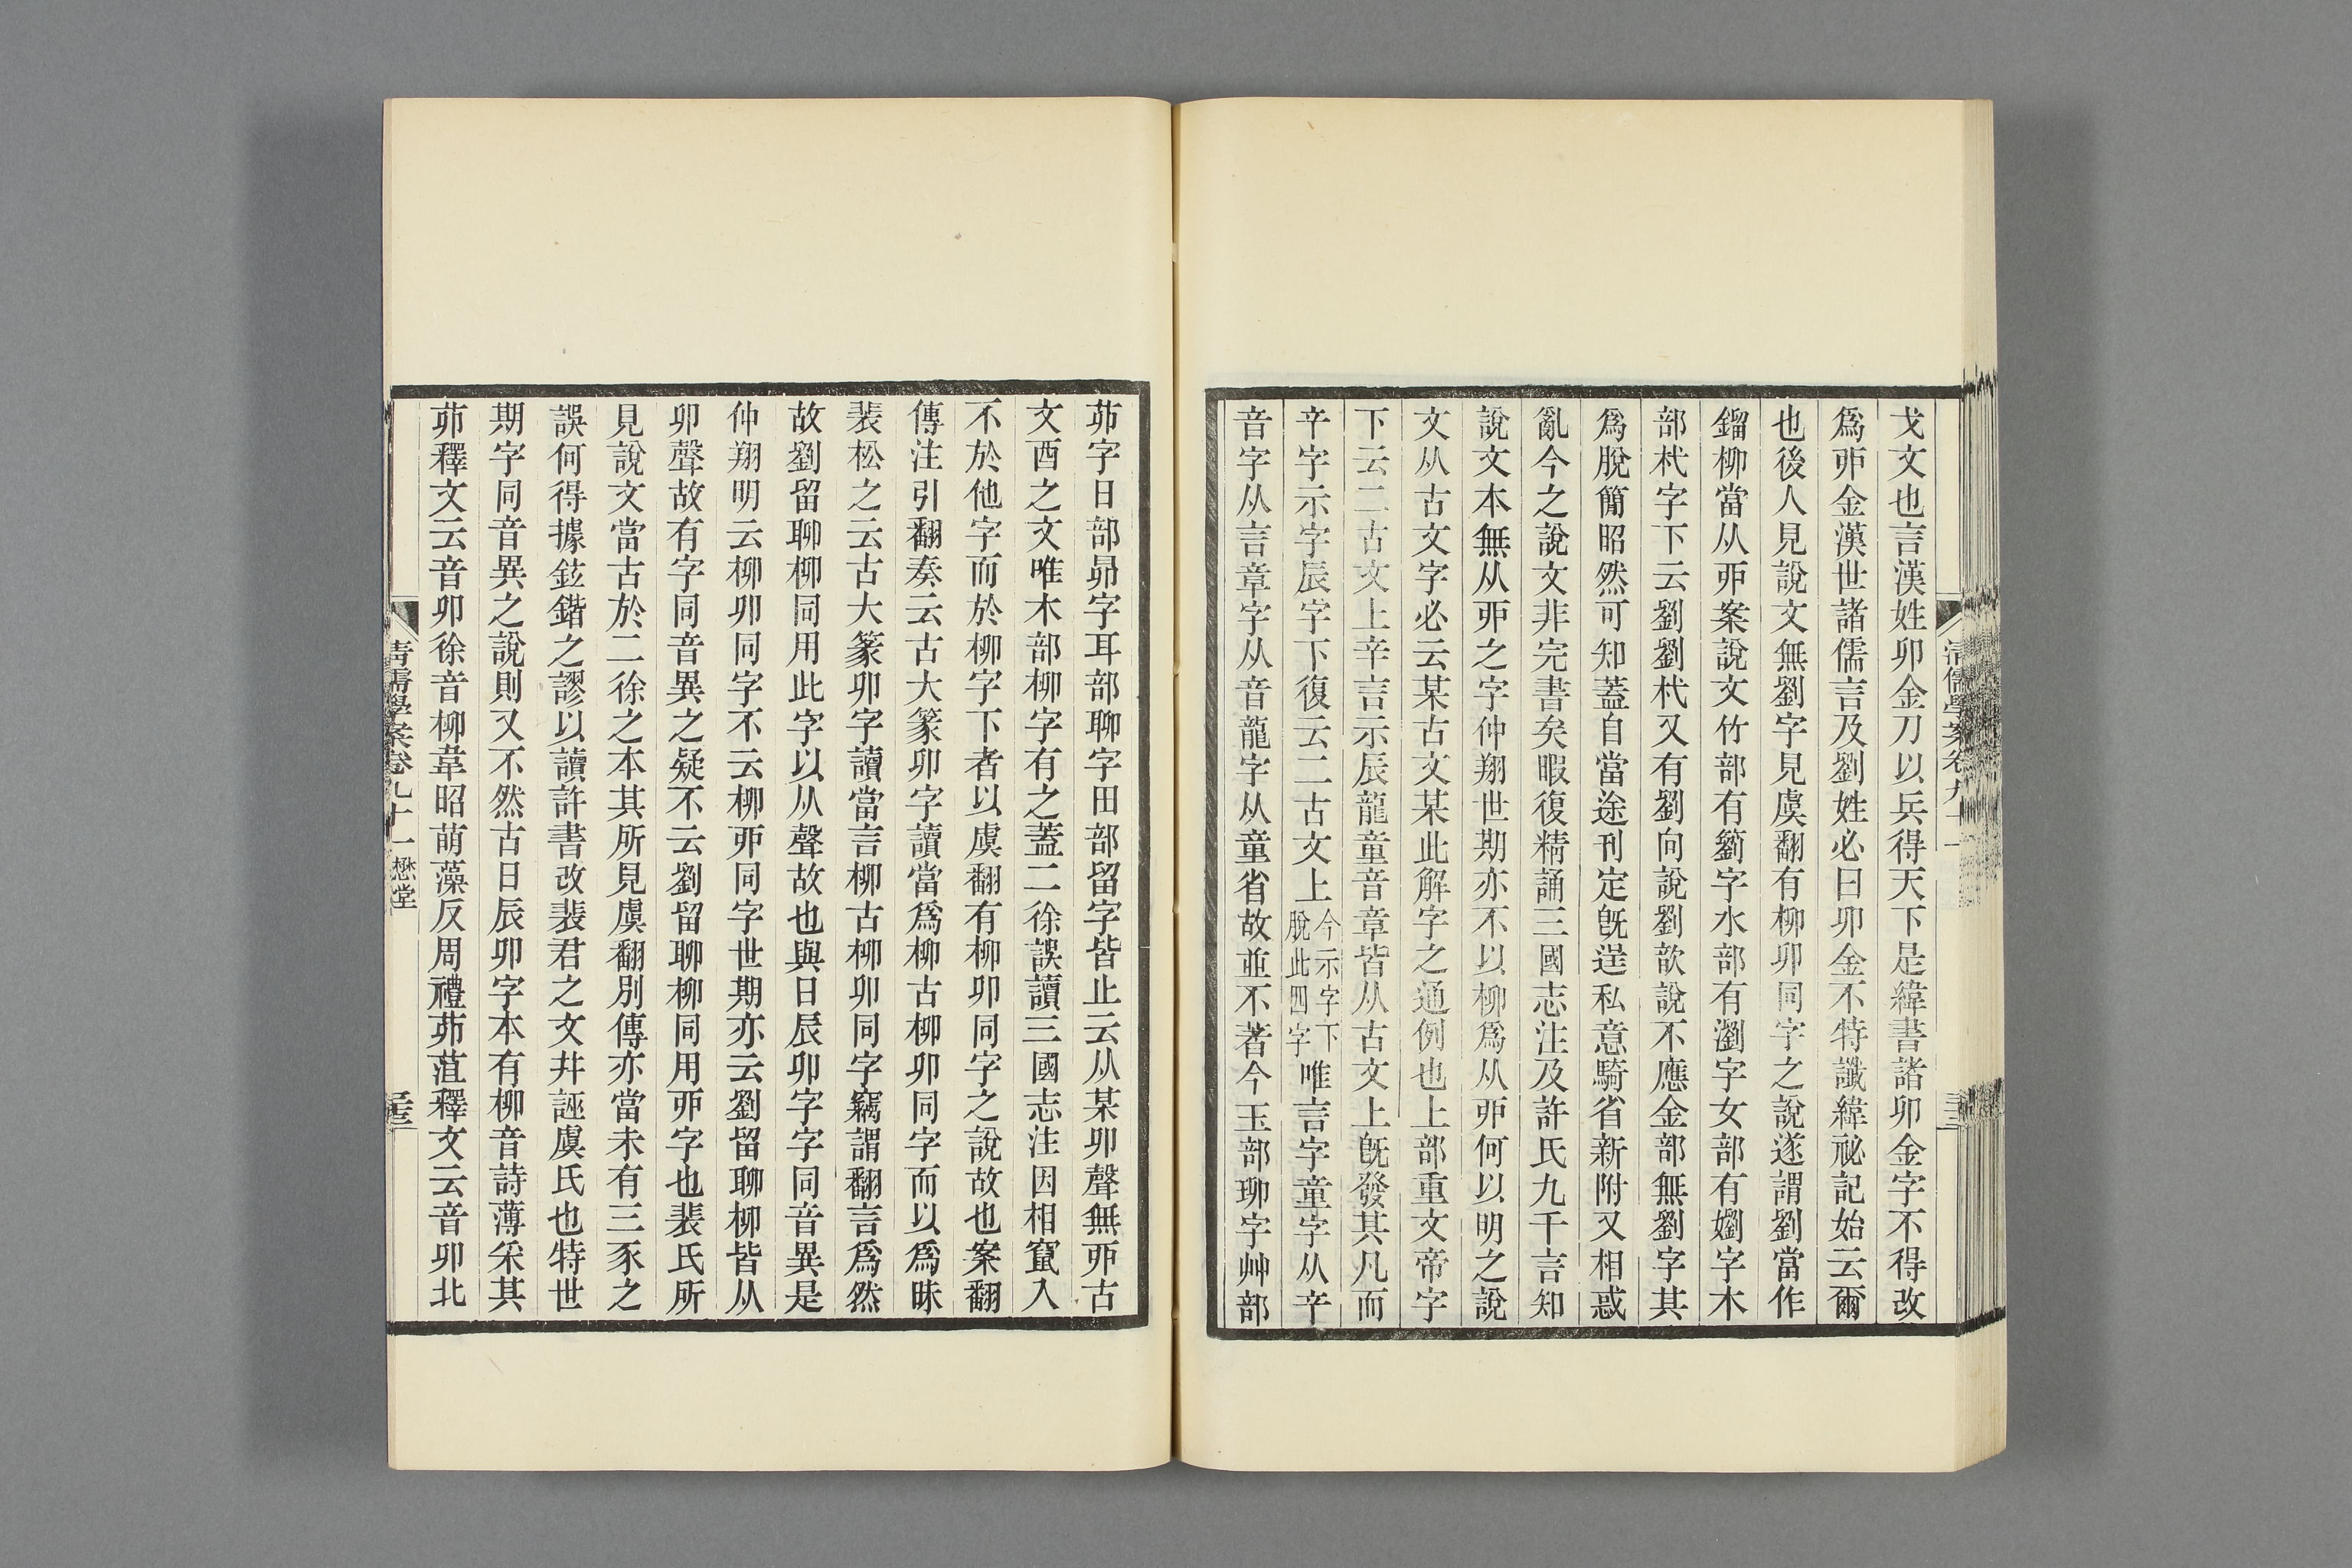 戈文也言漢姓卯金刀以兵得天下是緯書諸卯金字不得改
爲丣金漢世諸儒言及劉姓必曰卯金不特讖緯祕記始云爾
也後人見說文無劉字見虞翻有柳卯同字之說遂謂劉當作
鎦柳當从丣案說文竹部有籀字水部有瀏字女部有嬼字木
部杙字下云劉劉杙又有劉向說劉歆說不應金部無劉字其
爲脫簡昭然可知蓋自當途刊定旣逞私意騎省新附又相惑
亂今之說文非完書矣暇復精誦三國志注及許氏九千言知
說文本無从丣之字仲翔世期亦不以柳爲从丣何以明之說
文从古文字必云某古文某此解字之通例也上部重文帝字
下云二古文上䇂言示辰龍童音章皆从古文上旣發其凡而
䇂字示字辰字下復云二古文上今示字下脫此四字唯言字童字从䇂
音字从言章字从音龍字从童省故並不著今玉部珋字艸部
茆字日部昴字耳部聊字田部留字皆止云从某卯聲無丣古
文酉之文唯木部柳字有之蓋二徐誤讀三國志注因相竄入
不於他字而於柳字下者以虞翻有柳卯同字之說故也案翻
傳注引翻奏云古大篆卯字讀當爲柳古柳卯同字而以爲昧
裴松之云古大篆卯字讀當言柳古柳卯同字竊謂翻言爲然
故劉留聊柳同用此字以从聲故也與日辰卯字字同音異是
仲翔明云柳卯同字不云柳丣同字世期亦云劉留聊柳皆从
卯聲故有字同音異之疑不云劉留聊柳同用丣字也裴氏所
見說文當古於二徐之本其所見虞翻別傳亦當未有三豕之
誤何得據鉉鍇之謬以讀許書改裴君之文幷誣虞氏也特世
期字同音異之說則又不然古日辰卯字本有柳音詩薄采其
茆釋文云音卯徐音柳韋昭萌藻反周禮茆菹釋文云音卯北
清儒學案卷九十一 懋堂